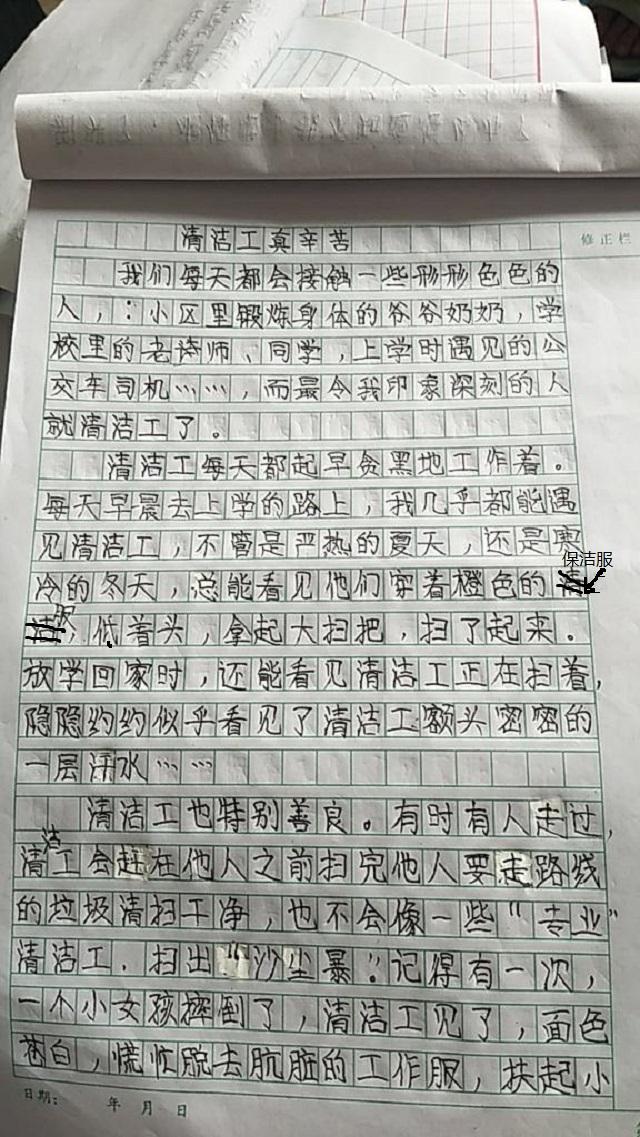 修正栏
清洁工真辛苦
我们每天都会接触一些形形色色的
人，：小区里锻炼身体的爷爷奶奶，学
校里的老师、同学，上学时遇见的公
交车司机……，而最令我印象深刻的人
就清洁工了。
清洁工每天都起早贪黑地工作着。
每天早晨去上学的路上，我几乎都能遇
见清洁工，不管是严热的夏天，还是寒
保洁服
冷的冬天，总能看见他们穿着橙色的
服，低着头，拿起大扫把，扫了起来。
放学回家时，还能看见清洁工正在扫着，
隐隐约约似乎看见了清洁工额头密密的
一层汗水……
清洁工也特别善良。有时有人走过，
清洁工会赶在他人之前扫完他人要走路线
的垃圾清扫干净，也不会像一些“专业”
清洁工．扫出“沙尘暴”。记得有一次，
一个小女孩摔倒了，清洁工见了，面色
苍白，慌忙脱去肮脏的工作服，扶起小
日期： 年 月 日